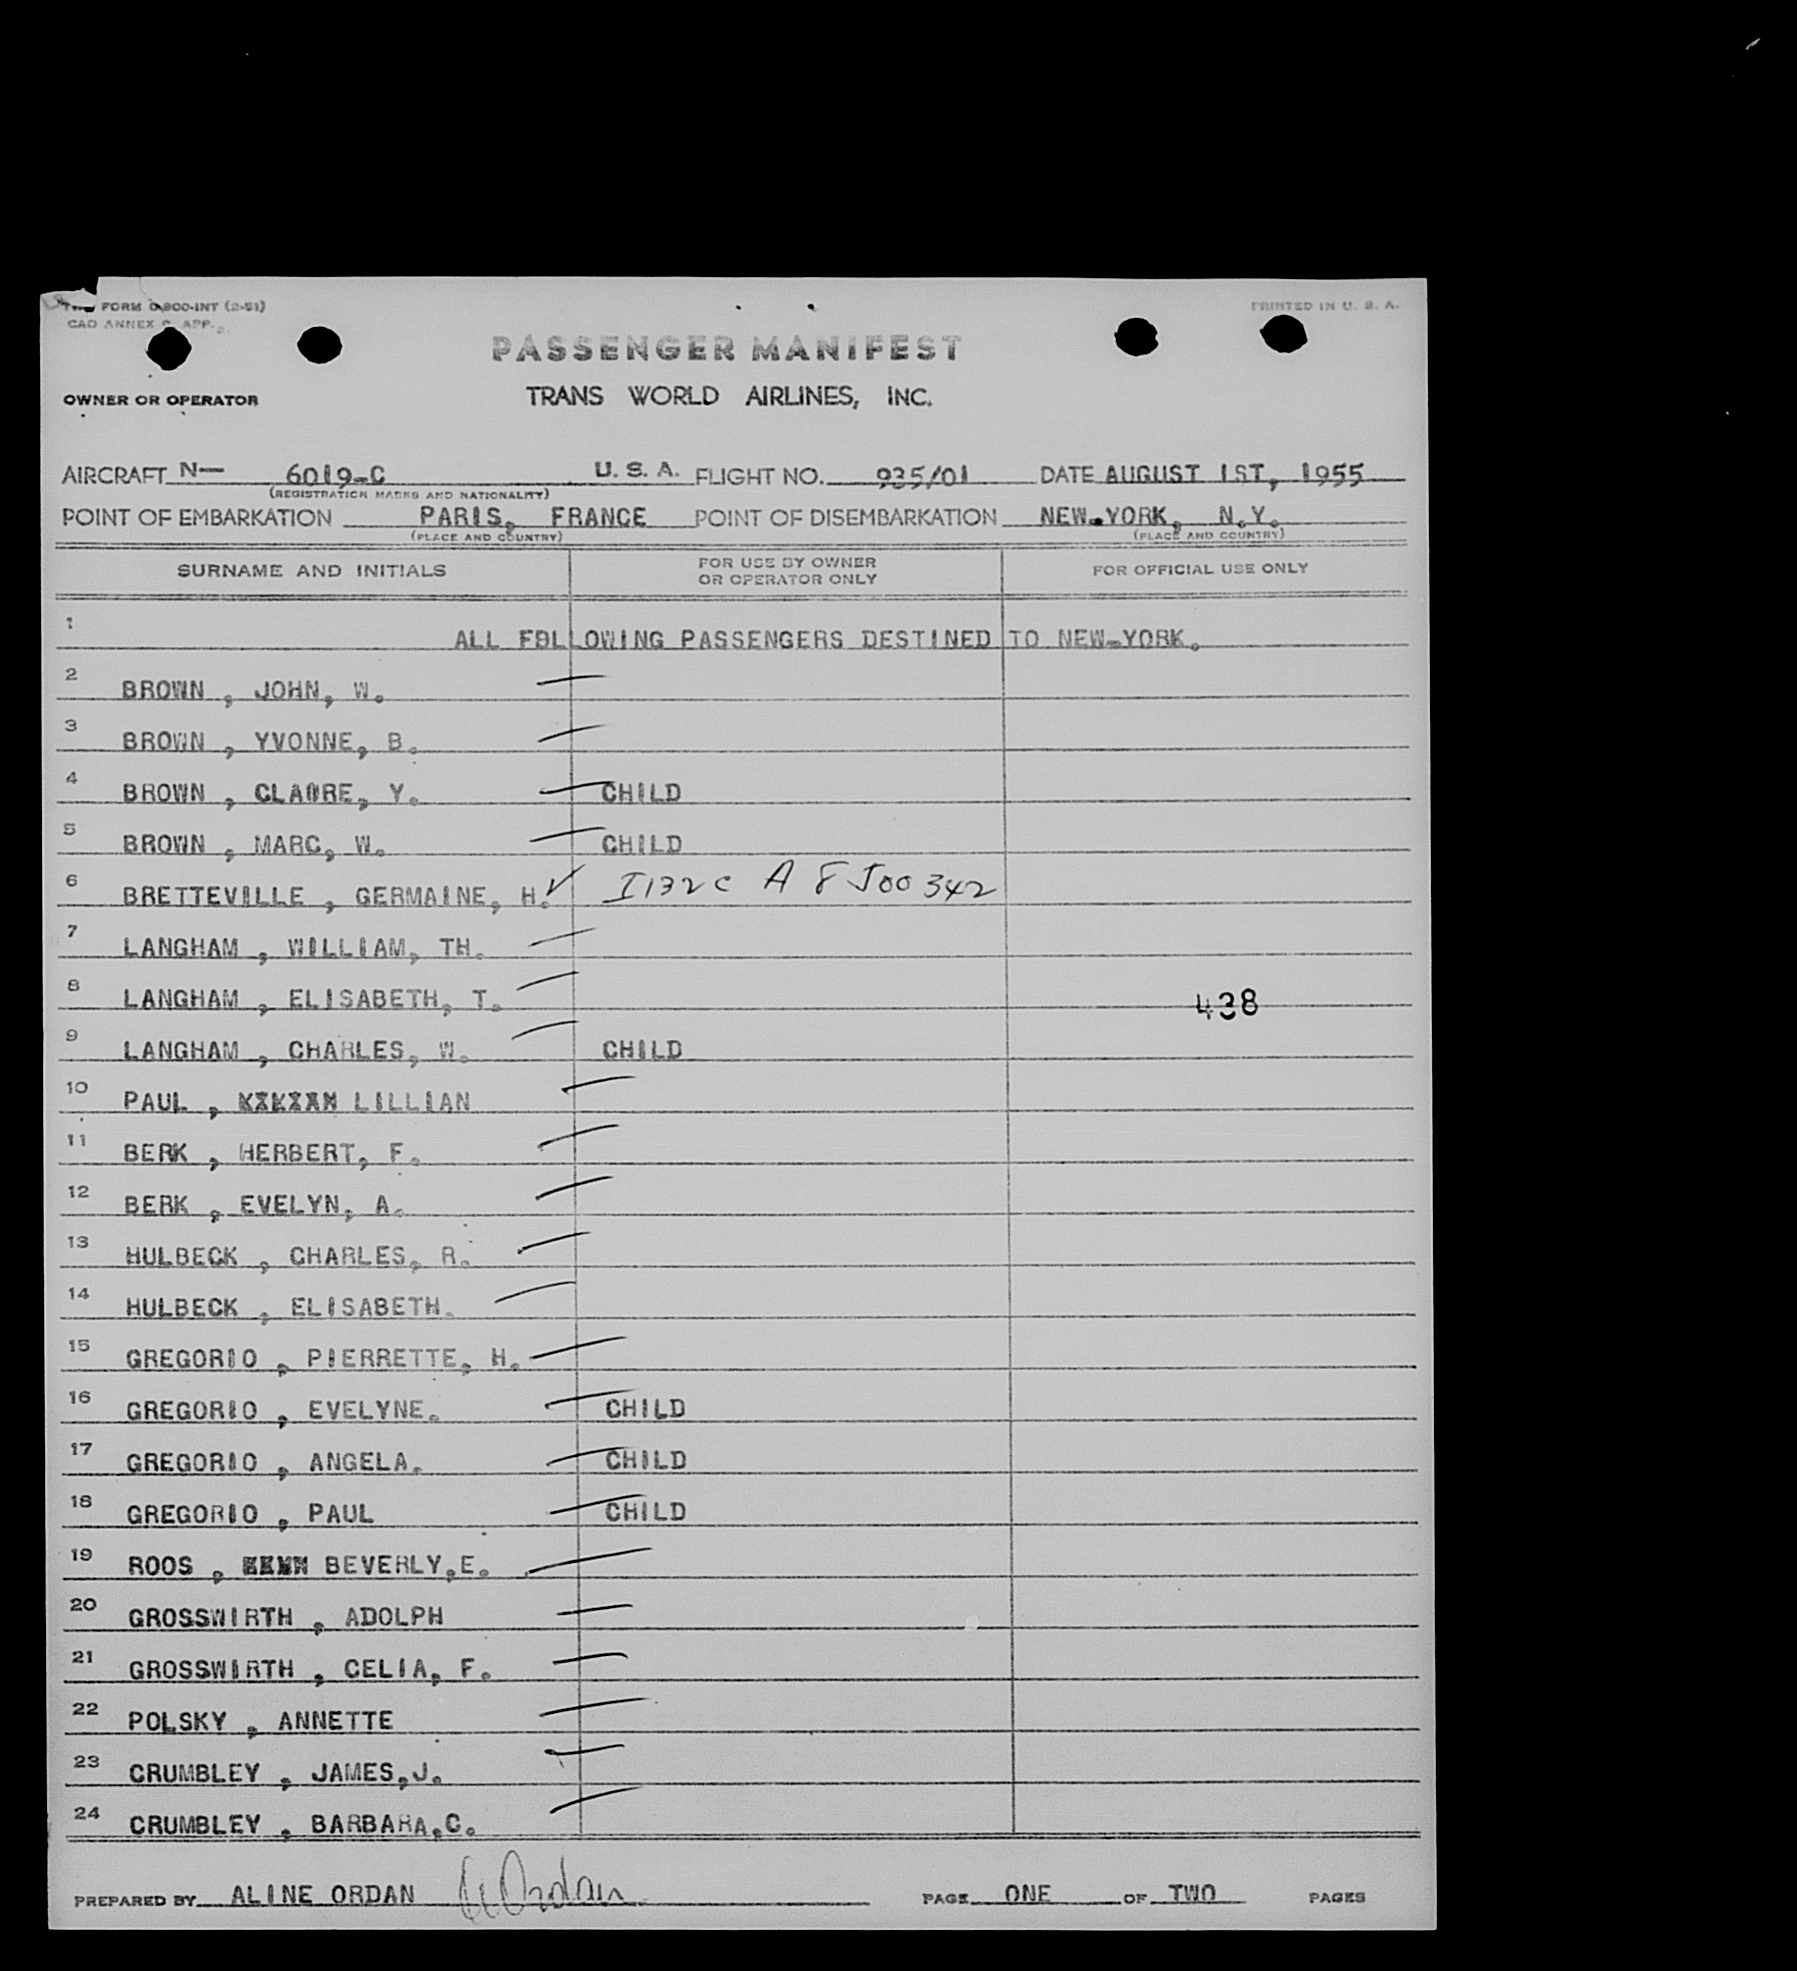 FORM 0800-INT (2-51)
PRINTED IN U. S. A.
CAO ANNEX 9 APP.
PASSENGER MANIFEST
OWNER OR OPERATOR TRANS WORLD AIRLINES, INC.
AIRCRAFT N— 6019-C U. S. A. FLIGHT NO. 935/01 DATE AUGUST 1ST, 1955
(REGISTRATION MARKS AND NATIONALITY)
POINT OF EMBARKATION PARIS, FRANCE POINT OF DISEMBARKATION NEW-YORK, N.Y.
(PLACE AND COUNTRY) (PLACE AND COUNTRY)
SURNAME AND INITIALS FOR USE BY OWNER OR OPERATOR ONLY FOR OFFICIAL USE ONLY
1 ALL FOLLOWING PASSENGERS DESTINED TO NEW-YORK.
2 BROWN , JOHN, W.
3 BROWN , YVONNE, B.
4 BROWN , CLAIRE, Y. CHILD
5 BROWN , MARC, W. CHILD
6 BRETTEVILLE , GERMAINE, H. I132c A 8 500 342
7 LANGHAM , WILLIAM, TH.
8 LANGHAM , ELISABETH, T. 438
9 LANGHAM , CHARLES, W. CHILD
10 PAUL , LILLIAN
11 BERK , HERBERT, F.
12 BERK , EVELYN, A.
13 HULBECK , CHARLES, R.
14 HULBECK , ELISABETH.
15 GREGORIO , PIERRETTE, H.
16 GREGORIO , EVELYNE. CHILD
17 GREGORIO , ANGELA. CHILD
18 GREGORIO , PAUL CHILD
19 ROOS , BEVERLY,E.
20 GROSSWIRTH , ADOLPH
21 GROSSWIRTH , CELIA, F.
22 POLSKY , ANNETTE
23 CRUMBLEY , JAMES,J.
24 CRUMBLEY , BARBARA,C.
PREPARED BY ALINE ORDAN A Ordan PAGE ONE OF TWO PAGES